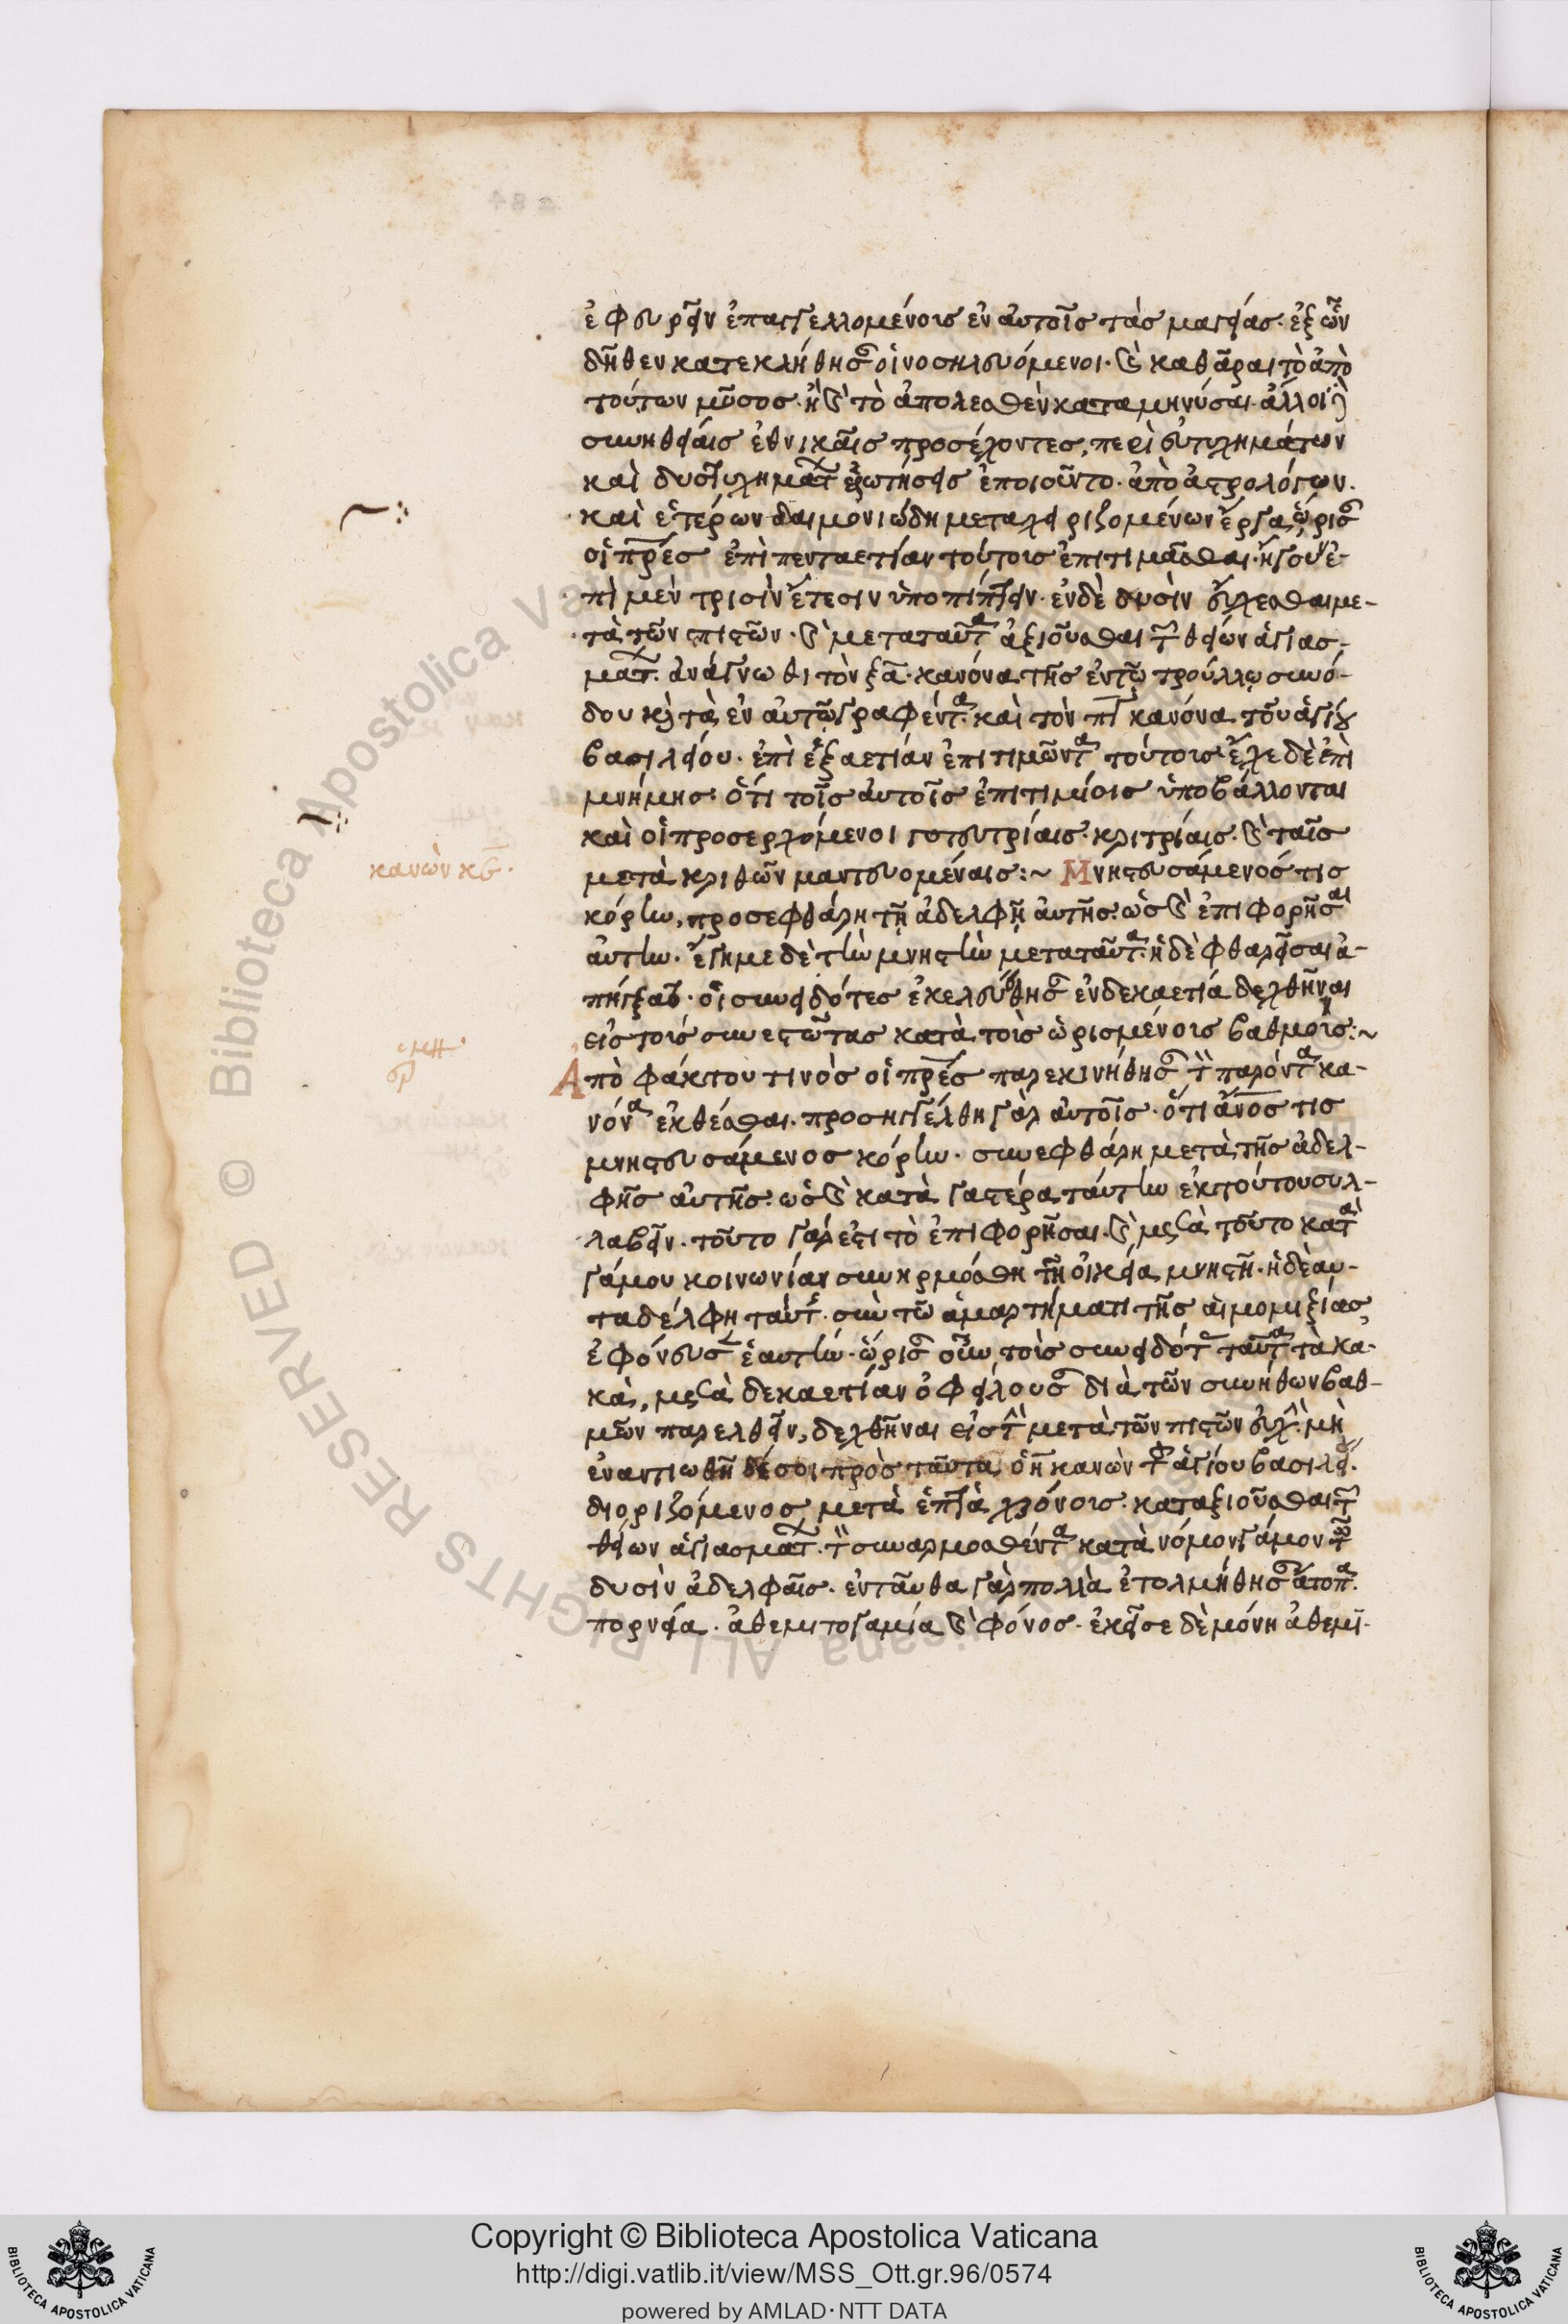 ἐφευρεῖν ἐπαγγελλομένοις ἐν αὐτοῖς τὰς μαγείας. ἐξ ὧν
δῆθεν κατεκλήθησαν οἱ νοσηλευόμενοι. καὶ καθᾶραι τὸ ἀπὸ
τούτων μῦσος. ἢ καὶ τὸ ἀπολεσθὲν καταμηνύσαι. ἄλλοι δὲ
συνηθείαις ἐθνικαῖς προσέχοντες, περὶ εὐτυχημάτων
καὶ δυστυχημάτων ἐρωτήσεις ἐποιοῦντο. ἀπὸ ἀστρολόγων.
καὶ ἑτέρων δαιμονιώδη μεταχειριζομένων ἔργα, ὥρισαν
οἱ πρες ἐπὶ πενταετίαν τούτοις ἐπιτιμᾶσθαι. ἤγουν ἐ-
πὶ μὲν τρισὶν ἔτεσιν ὑποπίπτειν. ἐν δὲ δυσὶν εὔχεσθαι με-
τὰ τῶν πιστῶν. καὶ μετα ταῦτα ἀξιοῦσθαι τῶν θείων ἁγιασ-
μάτων. ἀνάγνωθι τὸν ξα. κανόνα τῆς ἐν τῷ τρούλλῳ συνό-
δου καὶ τὰ ἐν αὐτῷ γραφέντα. καὶ τὸν πγ κανόνα τοῦ ἁγίου
βασιλείου. ἐπὶ ἑξαετίαν ἐπιτιμῶντα τούτοις. ἔχε δὲ ἐπὶ
μνήμης. ὅτι τοῖς αὐτοῖς ἐπιτιμίοις ὑποβάλλονται
καὶ οἱ προσερχόμενοι γοητευτρίαις. κριτρίαις. καὶ ταῖς
μετὰ κριθῶν μαντευομέναις:~ Μνηστευσάμενός τις
κανὼν κε.
κόρην, προσεφθάρη τῇ ἀδελφῇ αὐτῆς. ὡς καὶ ἐπιφορῆσαι
αὐτήν. ἔγημε δὲ τὴν μνηστὴν μετα ταῦτα. ἡ δὲ φθαρεῖσα ἀ-
πήγξατο. οἱ συνειδότες ἐκελεύθησαν ἐνδεκαετία δεχθῆναι
εἰς τοὺς συνεστῶτας κατὰ τοὺς ὡρισμένους βαθμούς:~
ἑρμη
Ἀπὸ φάκτου τινὸς οἱ πρες παρεκινήθησαν τὸν παρόντα κα-
νόνα ἐκθέσθαι. προσηγγέλθη γὰρ αὐτοῖς. ὅτι ἄνος τις
μνηστευσάμενος κόρην. συνεφθάρη μετὰ τῆς ἀδελ-
φῆς αὐτῆς. ὡς καὶ κατὰ γαστέρα ταύτην ἐκ τούτου συλ-
λαβεῖν. τοῦτο γάρ ἐστι τὸ ἐπιφορῆσαι. καὶ μετὰ τοῦτο κατὰ
γάμου κοινωνίαν συνηρμόσθη τῇ οἰκεία μνηστῇ. ἡ δὲ αυ-
ταδέλφη ταύτης. σὺν τῶ ἁμαρτήματι τῆς αἱμομιξίας,
ἐφόνευσεν ἑαυτήν. ὥρισαν οὖν τοὺς συνειδότας ταῦτα τὰ κα-
κά, μετὰ δεκαετίαν ὀφείλουσαν διὰ τῶν συνήθων βαθ-
μῶν παρελθεῖν, δεχθῆναι εἰς τὸ μετὰ τῶν πιστῶν εὔχεσθαι. μὴ
ἐναντιωθῆ δέ σοι πρὸς ταῦτα ὁ οη κανὼν τοῦ ἁγίου βασιλείου.
διοριζόμενος μετὰ ἑπτὰ χρόνους. καταξιοῦσθαι τῶν
θείων ἁγιασμάτων. τὸν συναρμοσθέντα κατὰ νόμον γάμου
δυσὶν ἀδελφαῖς. ἐνταῦθα γὰρ πολλὰ ἐτολμήθησαν ἄτοπα.
πορνεία. ἀθεμιτογαμία καὶ φόνος. ἐκεῖσε δὲ μόνη ἀθεμι-
Copyright © Biblioteca Apostolica Vaticana
http://digi.vatlib.it/view/MSS_Ott.gr.96/0574
powered by AMLAD·NTT DATA